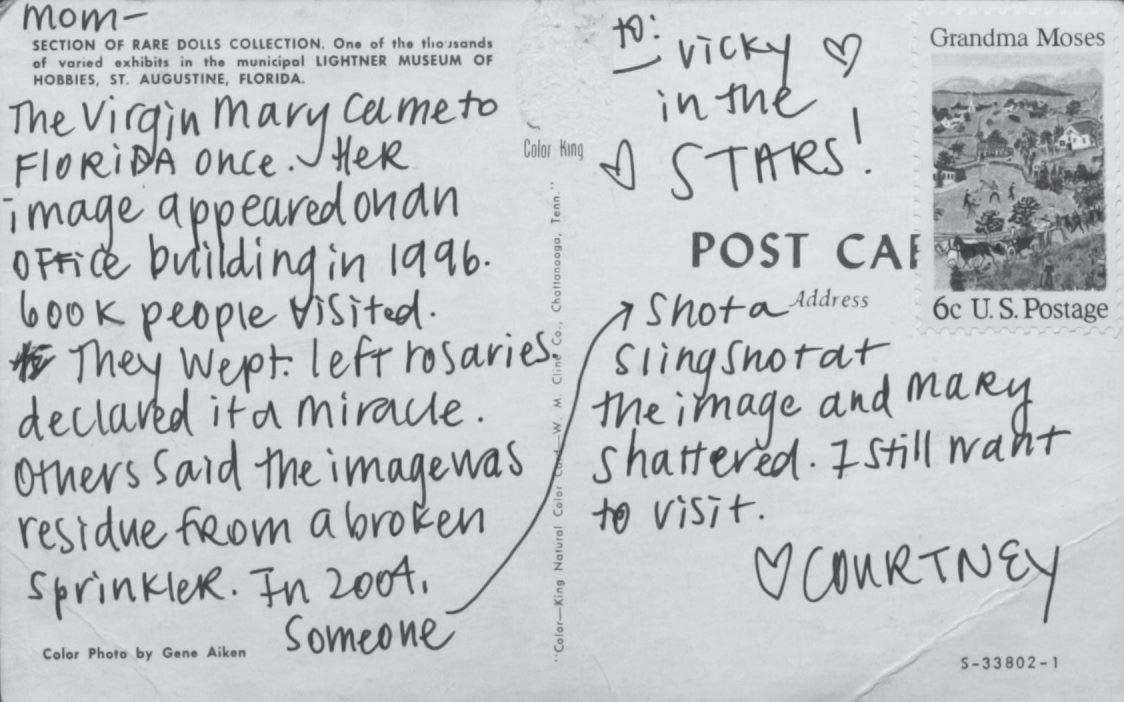 mom-
SECTION OF RARE DOLLS COLLECTION. One of the thousands
of varied exhibits in the municipal LIGHTNER MUSEUM OF
HOBBIES, ST. AUGUSTINE, FLORIDA.
The Virgin Mary came to
FLORIDA once. HER
image appeared on an
OFFice building in 1996.
600K people visited.
They wept. left rosaries.
declared it a miracle.
Others said the image was
residue from a broken
sprinkler. In 2004,
someone
Color Photo by Gene Aiken
Color King
"Color—King Natural Color Card—W. M. Cline Co., Chattanooga, Tenn."
to: Vicky ♡
in the
♡ STARS!
Grandma Moses
6c U.S. Postage
POST CAR
Address
shot a
slingshot at
the image and MARY
shattered. I still want
to visit.
♡ COURTNEY
S-33802-1